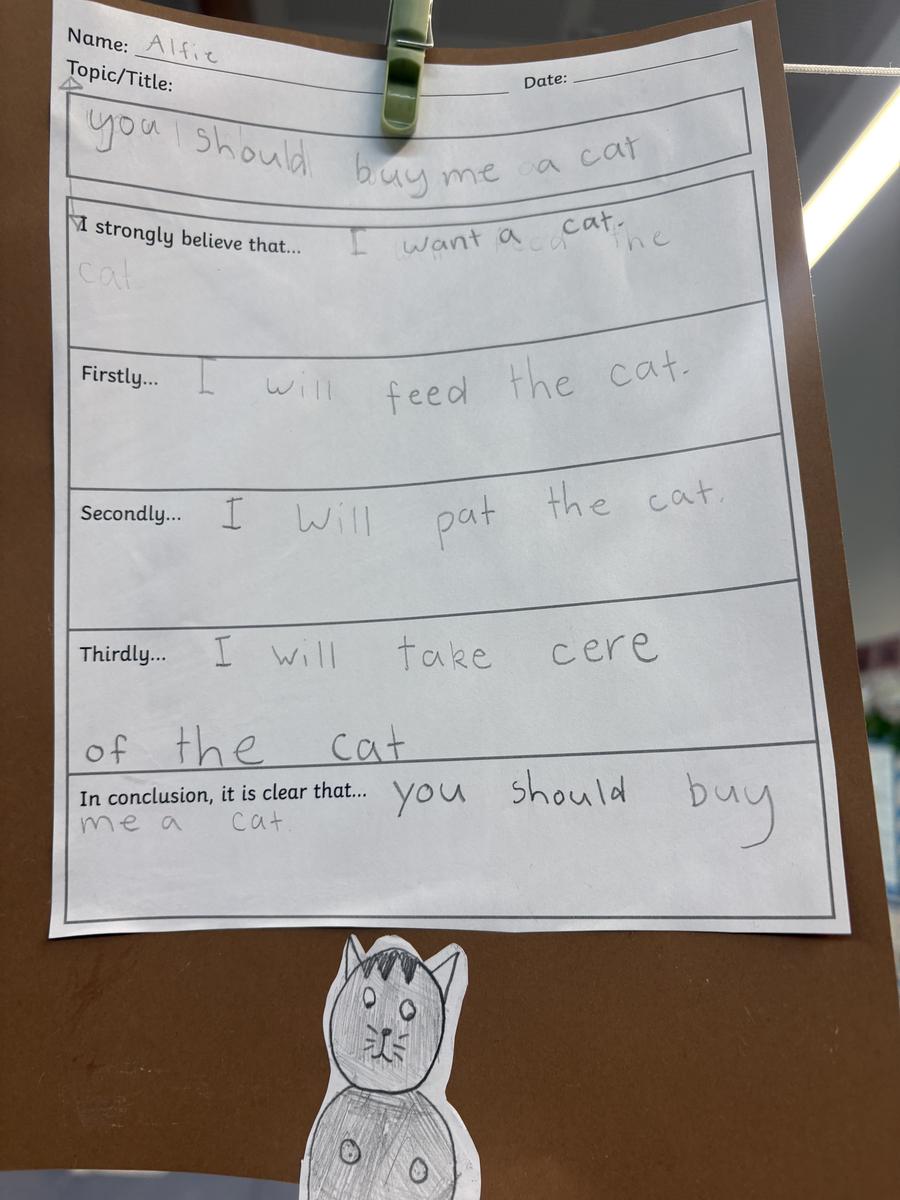 Name: Alfie
Date:
Topic/Title:
you should buy me a cat
I strongly believe that... I want a cat.
the
cat
Firstly... I will feed the cat.
Secondly... I will pat the cat.
Thirdly... I will take cere
of the cat
In conclusion, it is clear that... you should buy
me a cat.